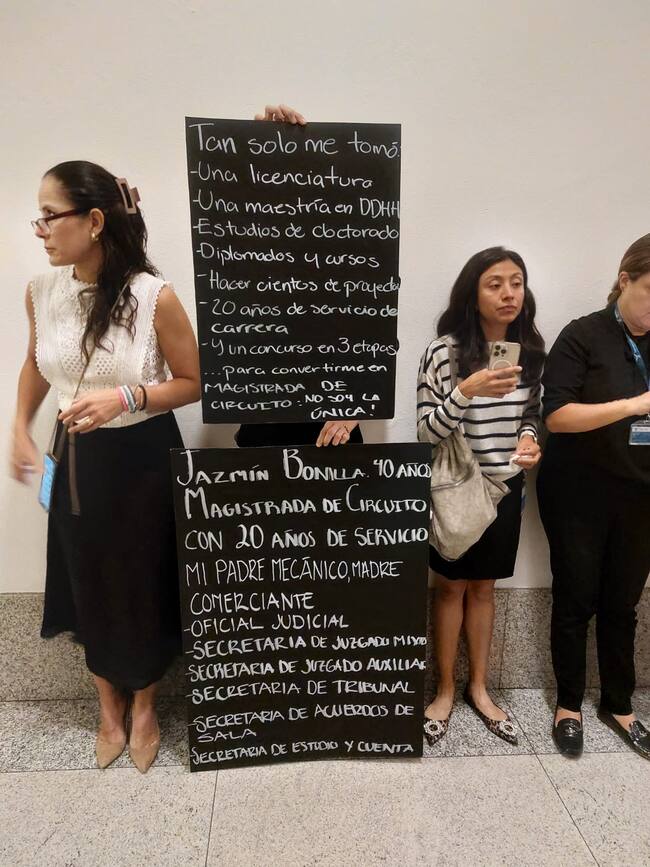 Tan solo me tomó:
-Una licenciatura
-Una maestría en DDHH
-Estudios de doctorado
-Diplomados y cursos
-Hacer cientos de proyecto
-20 años de servicio de
carrera
-Y un concurso en 3 etapas
...para convertirme en
MAGISTRADA DE
CIRCUITO. NO SOY LA
ÚNICA!
JAZMÍN BONILLA. 40 AÑOS
MAGISTRADA DE CIRCUITO
CON 20 AÑOS DE SERVICIO
MI PADRE MECÁNICO, MADRE
COMERCIANTE
-OFICIAL JUDICIAL
-SECRETARIA DE JUZGADO MIXTO
SECRETARIA DE JUZGADO AUXILIAR
-SECRETARIA DE TRIBUNAL
-SECRETARIA DE ACUERDOS DE
SALA
SECRETARIA DE ESTUDIO Y CUENTA